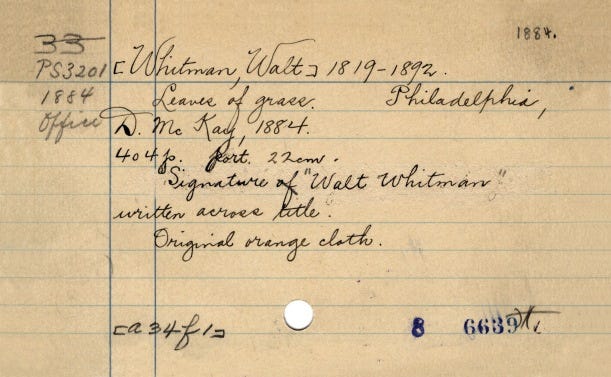 1884.
33
PS3201
1884
Office
[Whitman, Walt] 1819-1892.
Leaves of grass. Philadelphia,
D. McKay, 1884.
404p. port. 22cm.
Signature of "Walt Whitman"
written across title.
Original orange cloth.
[a34f1]
8 6639